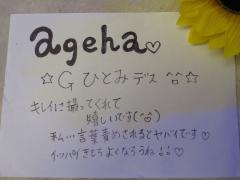 ageha♡
☆Gひとみデス^^☆
キレイに撮ってくれて
嬉しいです(^o^)
私…言葉責めされるとヤバイです♡
イッパイきもちよくなろうね^^♡